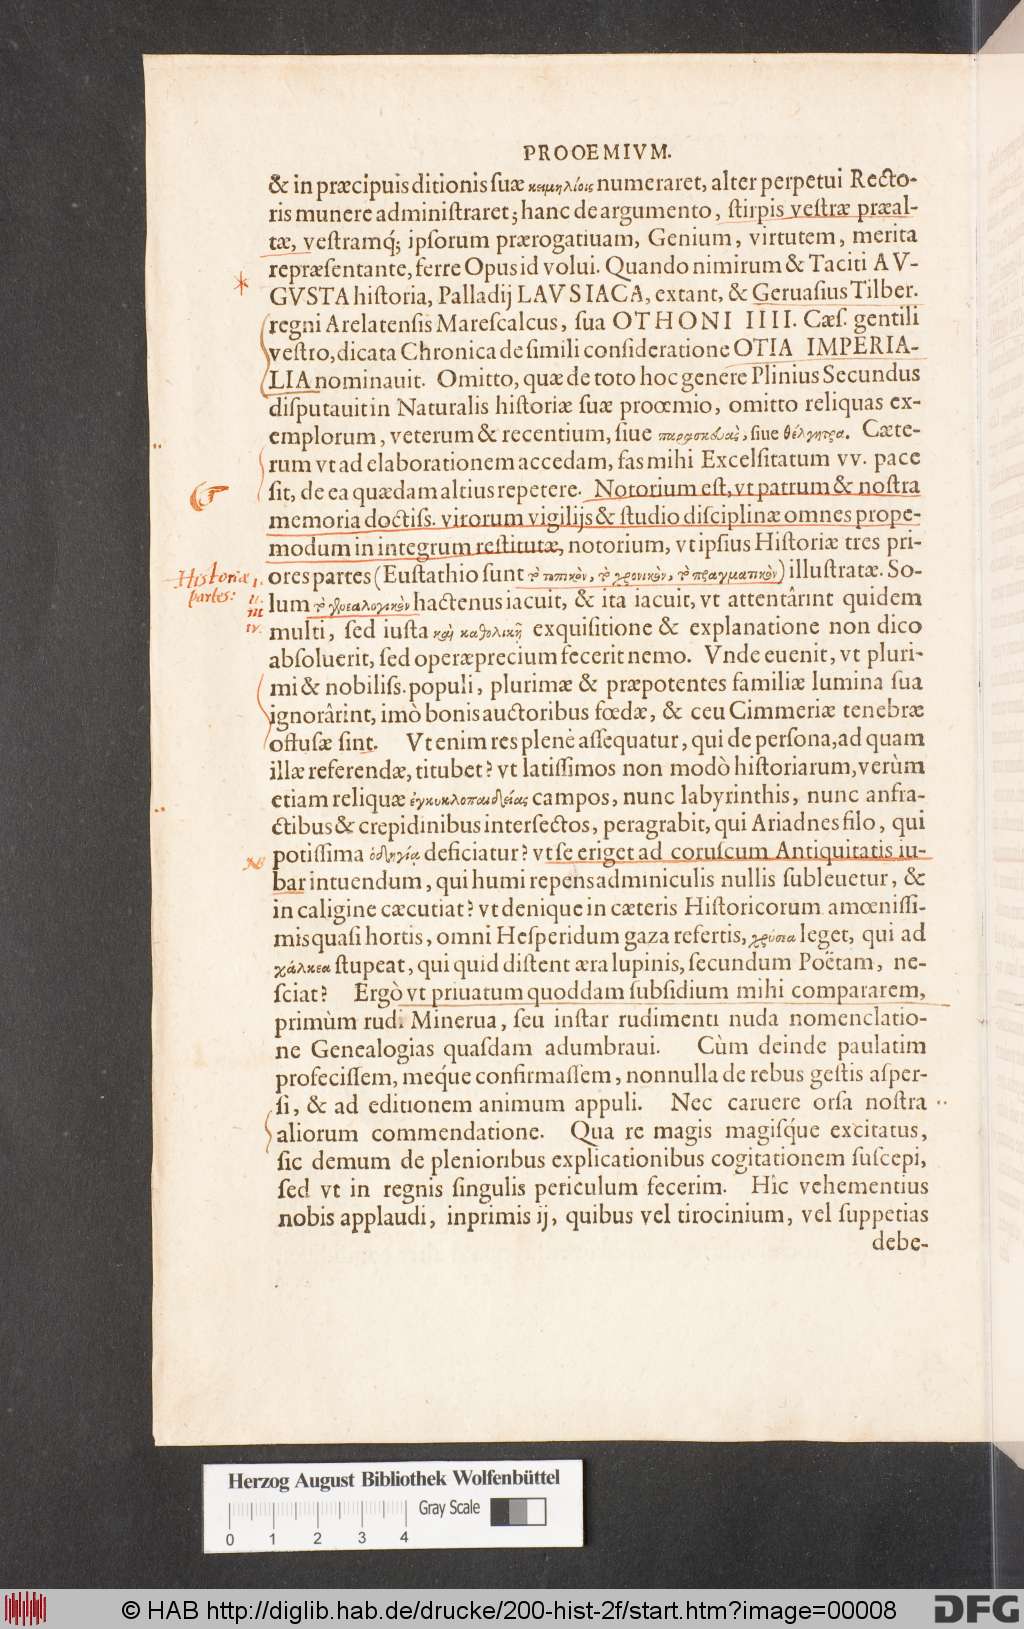 PROOEMIVM.
& in præcipuis ditionis ſuæ κειμηλίοις numeraret, alter perpetui Recto-
ris munere adminiſtraret; hanc de argumento, ſtirpis veſtræ præal-
tæ, veſtramq́; ipſorum prærogatiuam, Genium, virtutem, merita
repræſentante, ferre Opus id volui. Quando nimirum & Taciti AV-
GVSTA hiſtoria, Palladij LAVSIACA, extant, & Geruaſius Tilber.
regni Arelatenſis Mareſcalcus, ſua OTHONI IIII. Cæſ. gentili
veſtro, dicata Chronica de ſimili conſideratione OTIA IMPERIA-
LIA nominauit. Omitto, quæ de toto hoc genere Plinius Secundus
diſputauit in Naturalis hiſtoriæ ſuæ proœmio, omitto reliquas ex-
emplorum, veterum & recentium, ſiue παρασκευὰς, ſiue θέλγητρα. Cæte-
rum vt ad elaborationem accedam, fas mihi Excelſitatum vv. pace
ſit, de ea quædam altius repetere. Notorium eſt, vt patrum & noſtra
memoria doctiſs. virorum vigilijs & ſtudio diſciplinæ omnes prope-
modum in integrum reſtitutæ, notorium, vt ipſius Hiſtoriæ tres pri-
ores partes (Euſtathio ſunt τὸ τοπικὸν, τὸ χρονικὸν, τὸ πραγματικὸν) illuſtratæ. So-
lum τὸ γενεαλογικὸν hactenus iacuit, & ita iacuit, vt attentârint quidem
multi, ſed iuſta καὶ καθολικῇ exquiſitione & explanatione non dico
abſoluerit, ſed operæprecium fecerit nemo. Vnde euenit, vt pluri-
mi & nobiliſs. populi, plurimæ & præpotentes familiæ lumina ſua
ignorârint, imò bonis auctoribus fœdæ, & ceu Cimmeriæ tenebræ
offuſæ ſint. Vt enim res plenè aſſequatur, qui de perſona, ad quam
illæ referendæ, titubet? vt latiſſimos non modò hiſtoriarum, verùm
etiam reliquæ ἐγκυκλοπαιδείας campos, nunc labyrinthis, nunc anfra-
ctibus & crepidinibus interſectos, peragrabit, qui Ariadnes filo, qui
potiſſima ὁδηγίᾳ deficiatur? vt ſe eriget ad coruſcum Antiquitatis iu-
bar intuendum, qui humi repens adminiculis nullis ſubleuetur, &
in caligine cæcutiat? vt denique in cæteris Hiſtoricorum amœniſſi-
mis quaſi hortis, omni Heſperidum gaza refertis, χρύσεα leget, qui ad
χάλκεα ſtupeat, qui quid diſtent æra lupinis, ſecundum Poëtam, ne-
ſciat? Ergò vt priuatum quoddam ſubſidium mihi compararem,
primùm rudi Minerua, ſeu inſtar rudimenti nuda nomenclatio-
ne Genealogias quaſdam adumbraui. Cùm deinde paulatim
profeciſſem, meq́ue confirmaſſem, nonnulla de rebus geſtis aſper-
ſi, & ad editionem animum appuli. Nec caruere orſa noſtra
aliorum commendatione. Qua re magis magiſq́ue excitatus,
ſic demum de plenioribus explicationibus cogitationem ſuſcepi,
ſed vt in regnis ſingulis periculum fecerim. Hîc vehementius
nobis applaudi, inprimis ij, quibus vel tirocinium, vel ſuppetias
debe-
Historiæ
partes:
I.
II.
III
IV.
Herzog August Bibliothek Wolfenbüttel
Gray Scale
0 1 2 3 4
© HAB http://diglib.hab.de/drucke/200-hist-2f/start.htm?image=00008
DFG